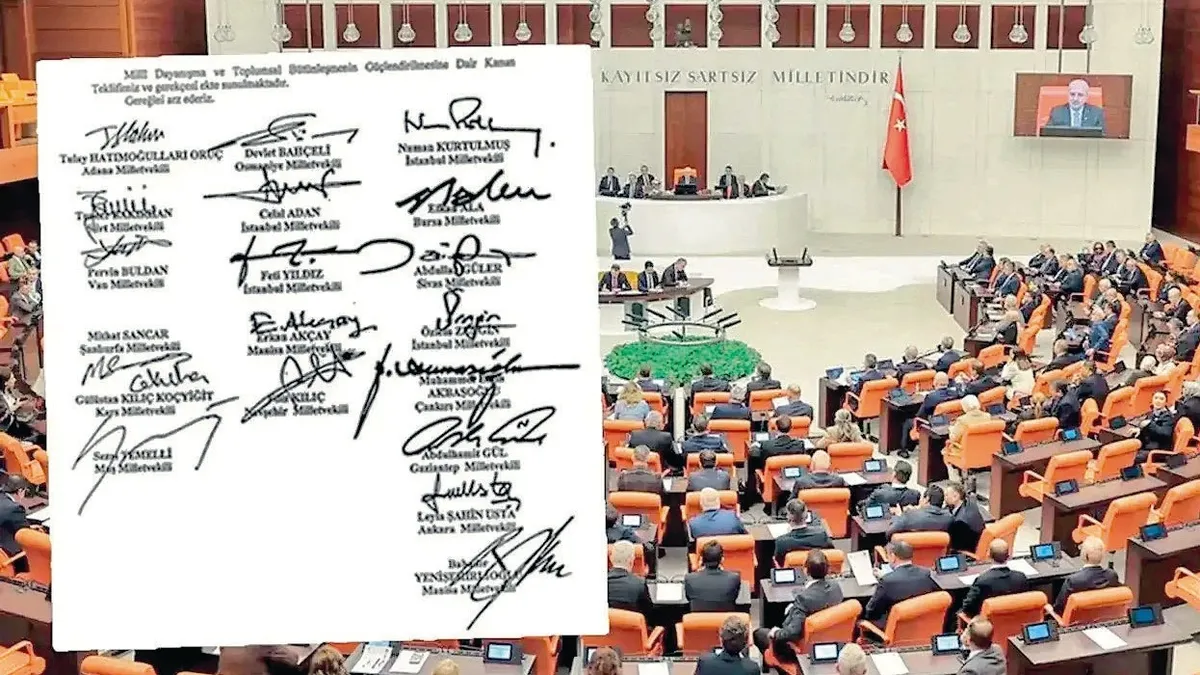 Milli Dayanışma ve Toplumsal Bütünleşmenin Güçlendirilmesine Dair Kanun
Teklifimiz ve gerekçesi ekte sunulmaktadır.
Gereğini arz ederiz.
Tulay HATIMOĞULLARI ORUÇ
Adana Milletvekili
Devlet BAHÇELİ
Osmaniye Milletvekili
Numan KURTULMUŞ
İstanbul Milletvekili
Siirt Milletvekili
Celal ADAN
İstanbul Milletvekili
ALA
Bursa Milletvekili
Pervin BULDAN
Van Milletvekili
Feti YILDIZ
İstanbul Milletvekili
Abdullah GÜLER
Sivas Milletvekili
Mithat SANCAR
Şanlıurfa Milletvekili
Erkan AKÇAY
Manisa Milletvekili
İstanbul Milletvekili
Gülistan KILIÇ KOÇYİĞİT
Kars Milletvekili
KILIÇ
Nevşehir Milletvekili
Muhammet
AKBAŞOĞLU
Çankırı Milletvekili
Sezai TEMELLİ
Muş Milletvekili
Abdulhamit GÜL
Gaziantep Milletvekili
Leyla ŞAHİN USTA
Ankara Milletvekili
YENİŞEHİRLİOĞLU
Manisa Milletvekili
KAYITSIZ ŞARTSIZ MİLLETİNDİR